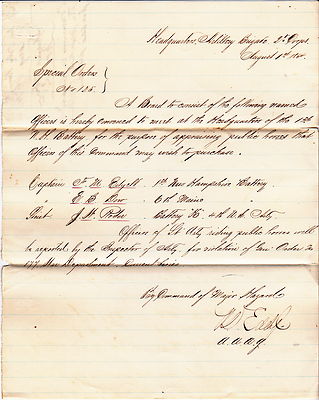 Headquarters, Artillery Brigade, 2d Corps.
August 1st
Special Orders
No 135
A Board to consist of the following named
Officers is hereby convened to meet at the Headquarters of the
N.H. Battery, for the purpose of appraising public horses that
Officers of this Command may wish to purchase.
Captain F. M. Edgell 1st New Hampshire Battery
" E. B. Dow 6th Maine "
Battery K, 4th U.S. Arty
Officers of Lt Arty riding public horses will
be reported by the Inspector of Arty, for violation of Gen Orders No
War Department, Current Series
By Command of Major Hazard
A.A.A.G.